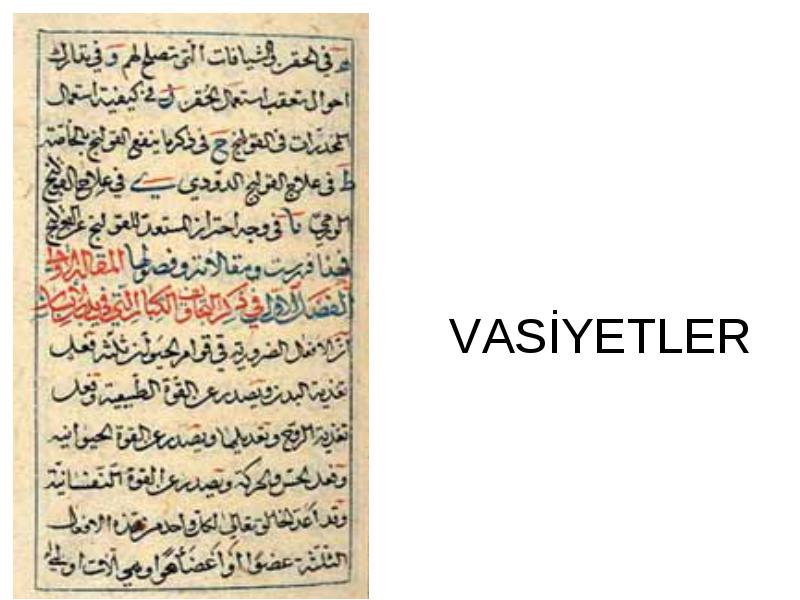 ه في الحقن والشيافات التي تصلح لهم و في تدارك
احوال تعقب استعمال الحقن ز في كيفية استعمال
المخدرات في القولنج ح في ذكر ما ينفع القولنج بالخاصة
ط في علاج القولنج الدودي ي في علاج القولنج
يا في وجه احتراز المستعد للقولنج عن القولنج
فهذا فهرست ومقالاته وفصولها المقالة الاولى
الفصل الاول في ذكر في بدن الانسان
ان الافعال الضرورية في قوام الحيوان ثلثة فعل
تغذية البدن ويصدر عن القوة الطبيعية وفعل
تغذية الروح وتعديلها ويصدر عن القوة الحيوانية
وفعل الحس والحركة ويصدر عن القوة النفسانية
وقد اعد الخالق تعالى لكل واحد من هذه الافعال
الثلثة عضوا او اعضاء هي الات
VASİYETLER